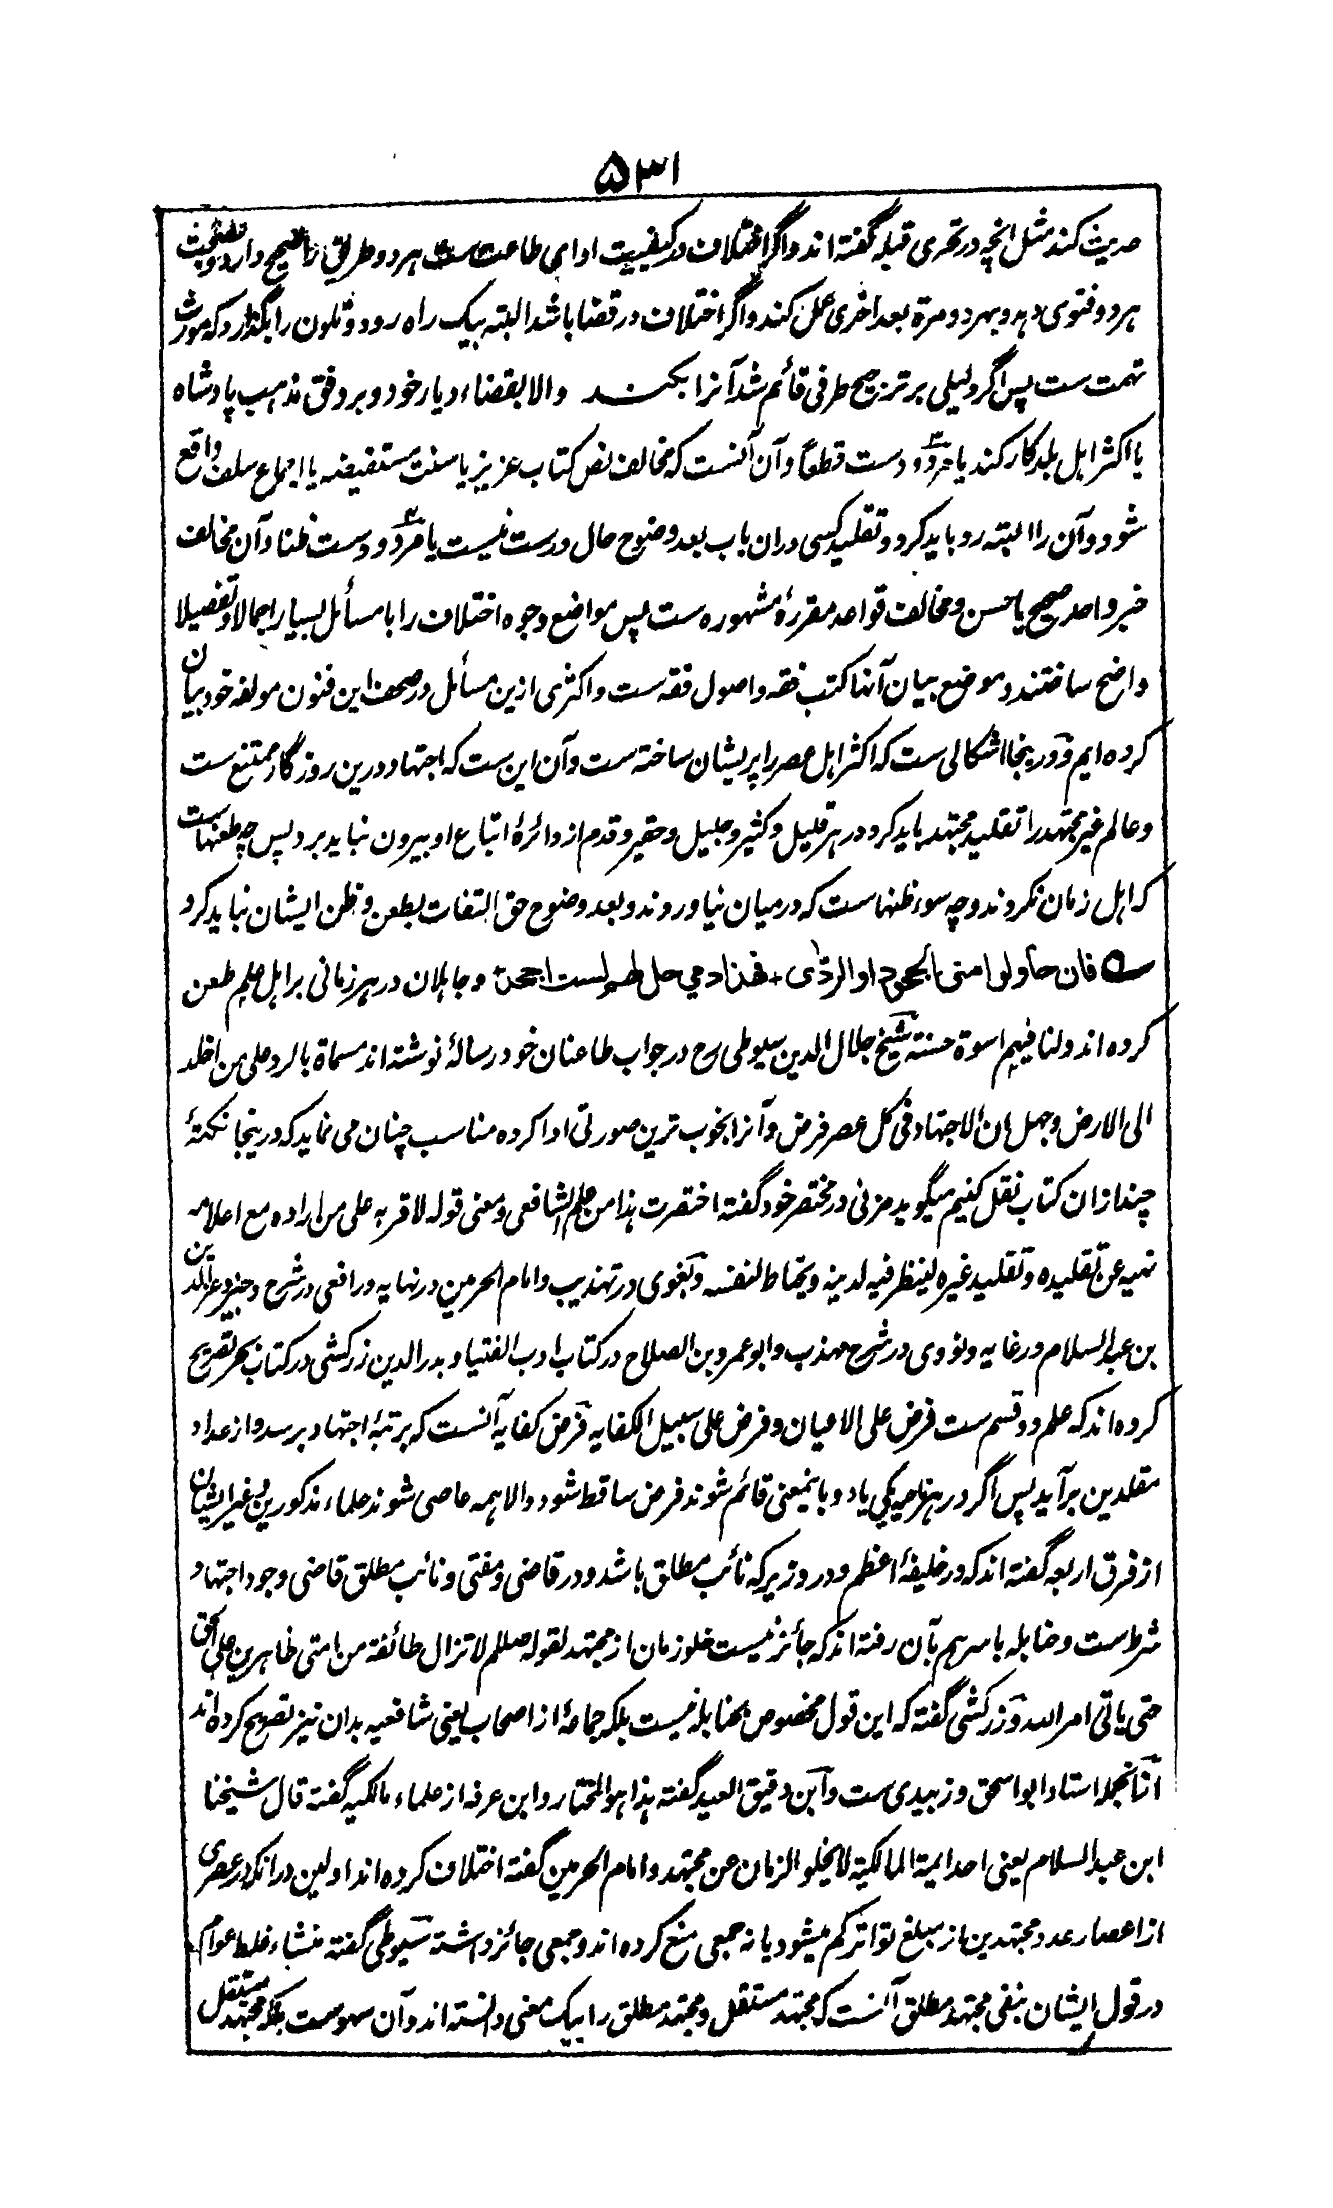 ۵۳۱
حدیث کند مثل انچه در تحری قبله گفته اند و اگر اختلاف در کیفیت ادای طاعت ست هر دو طریق را صحیح دارد و بصحت
هر دو فتوی دهد و بهر دو مرة بعد اخری عمل کند و اگر اختلاف در قضا باشد البته بیک راه رود و تلون را بگذارد که مورث
تهمت ست پس اگر دلیلی بر ترجیح طرفی قائم شد آنرا بکند والا بقضاء دیار خود و بر وفق مذهب پادشاه
یا اکثر اهل بلد کار کند یا مردود ست قطعا و آن آنست که مخالف نص کتاب عزیز یا سنت مستفیضه یا اجماع سلف واقع
شود و آن را البته رد باید کرد و تقلید کسی دران باب بعد وضوح حال درست نیست یا مردود ست ظنا و آن مخالف
خبر واحد صحیح یا حسن و مخالف قواعد مقررهٔ مشهوره ست پس مواضع وجوه اختلاف را با مسائل بسیار اجمالا و تفصیلا
واضح ساختند و موضع بیان آنها کتب فقه و اصول فقه ست و اکثری ازین مسائل در صحف این فنون مولفه خود بیان
کرده ایم و درینجا اشکالی ست که اکثر اهل عصر را پریشان ساخته ست و آن این ست که اجتهاد درین روزگار ممتنع ست
و عالم غیر مجتهد را تقلید مجتهد باید کرد در هر قلیل و کثیر و جلیل و حقیر و قدم از دائرهٔ اتباع او بیرون نباید برد پس چه طعنهاست
که اهل زمان نکردند و چه سوء ظنهاست که درمیان نیاوردند و بعد وضوح حق التفات بطعن و ظن ایشان نباید کرد
فان حاولوا منی الجحود او الردی فهذا دمی حل و جاهلان در هر زمانی بر اهل علم طعن
کرده اند ولنا فیهم اسوة حسنة شیخ جلال الدین سیوطی رح در جواب طاعنان خود رسالهٔ نوشته اند مسماة بالرد علی من اخلد
الی الارض وجهل ان الاجتهاد فی کل عصر فرض و آنرا بخوب ترین صورتی ادا کرده مناسب چنان می نماید که درینجا نکتهٔ
چند ازان کتاب نقل کنیم میگوید مزنی در مختصر خود گفته اختصرت هذا من علم الشافعی ومعنی قوله لاقربه علی من اراده مع اعلامه
نهیه عن تقلیده و تقلید غیره لینظر فیه لدینه ویحتاط لنفسه و بغوی در تهذیب و امام الحرمین در نهایه و رافعی در شرح وجیز و عزالدین
بن عبد السلام در غایه و نووی در شرح مهذب و ابو عمرو بن الصلاح در کتاب ادب الفتیا و بدر الدین زرکشی در کتاب بحر تصریح
کرده اند که علم دو قسم ست فرض علی الاعیان و فرض علی سبیل الکفایه فرض کفایه آنست که برتبهٔ اجتهاد برسد و از عداد
مقلدین برآید پس اگر در هر ناحیه یکی یا دو باینمعنی قائم شوند فرض ساقط شود والا همه عاصی شوند علماء مذکورین و غیر ایشان
از فرق اربعه گفته اند که در خلیفهٔ اعظم و در وزیر که نائب مطلق باشد و در قاضی و مفتی و نائب مطلق قاضی وجود اجتهاد
شرط ست و حنابله باسرهم بآن رفته اند که جائز نیست خلو زمان از مجتهد لقوله صللم لا تزال طائفة من امتی ظاهرین علی الحق
حتی یاتی امر الله و زرکشی گفته که این قول مخصوص بحنابله نیست بلکه جماعهٔ از اصحاب یعنی شافعیه بدان نیز تصریح کرده اند
ازانجمله استاد ابو اسحق و زبیدی ست و ابن دقیق العید گفته هذا هو المختار و ابن عرفه از علماء مالکیه گفته قال شیخنا
ابن عبد السلام یعنی احد ایمة المالکیة لا یخلو الزمان عن مجتهد و امام الحرمین گفته اختلاف کرده اند اولین در انکه در عصری
از اعصار عدد مجتهدین از مبلغ تواتر کم میشود یا نه جمعی منع کرده اند و جمعی جائز داشته سیوطی گفته منشاء غلط عوام
در قول ایشان بنفی مجتهد مطلق آنست که مجتهد مستقل و مجتهد مطلق را بیک معنی دانسته اند و آن سهوست بلکه مجتهد مستقل